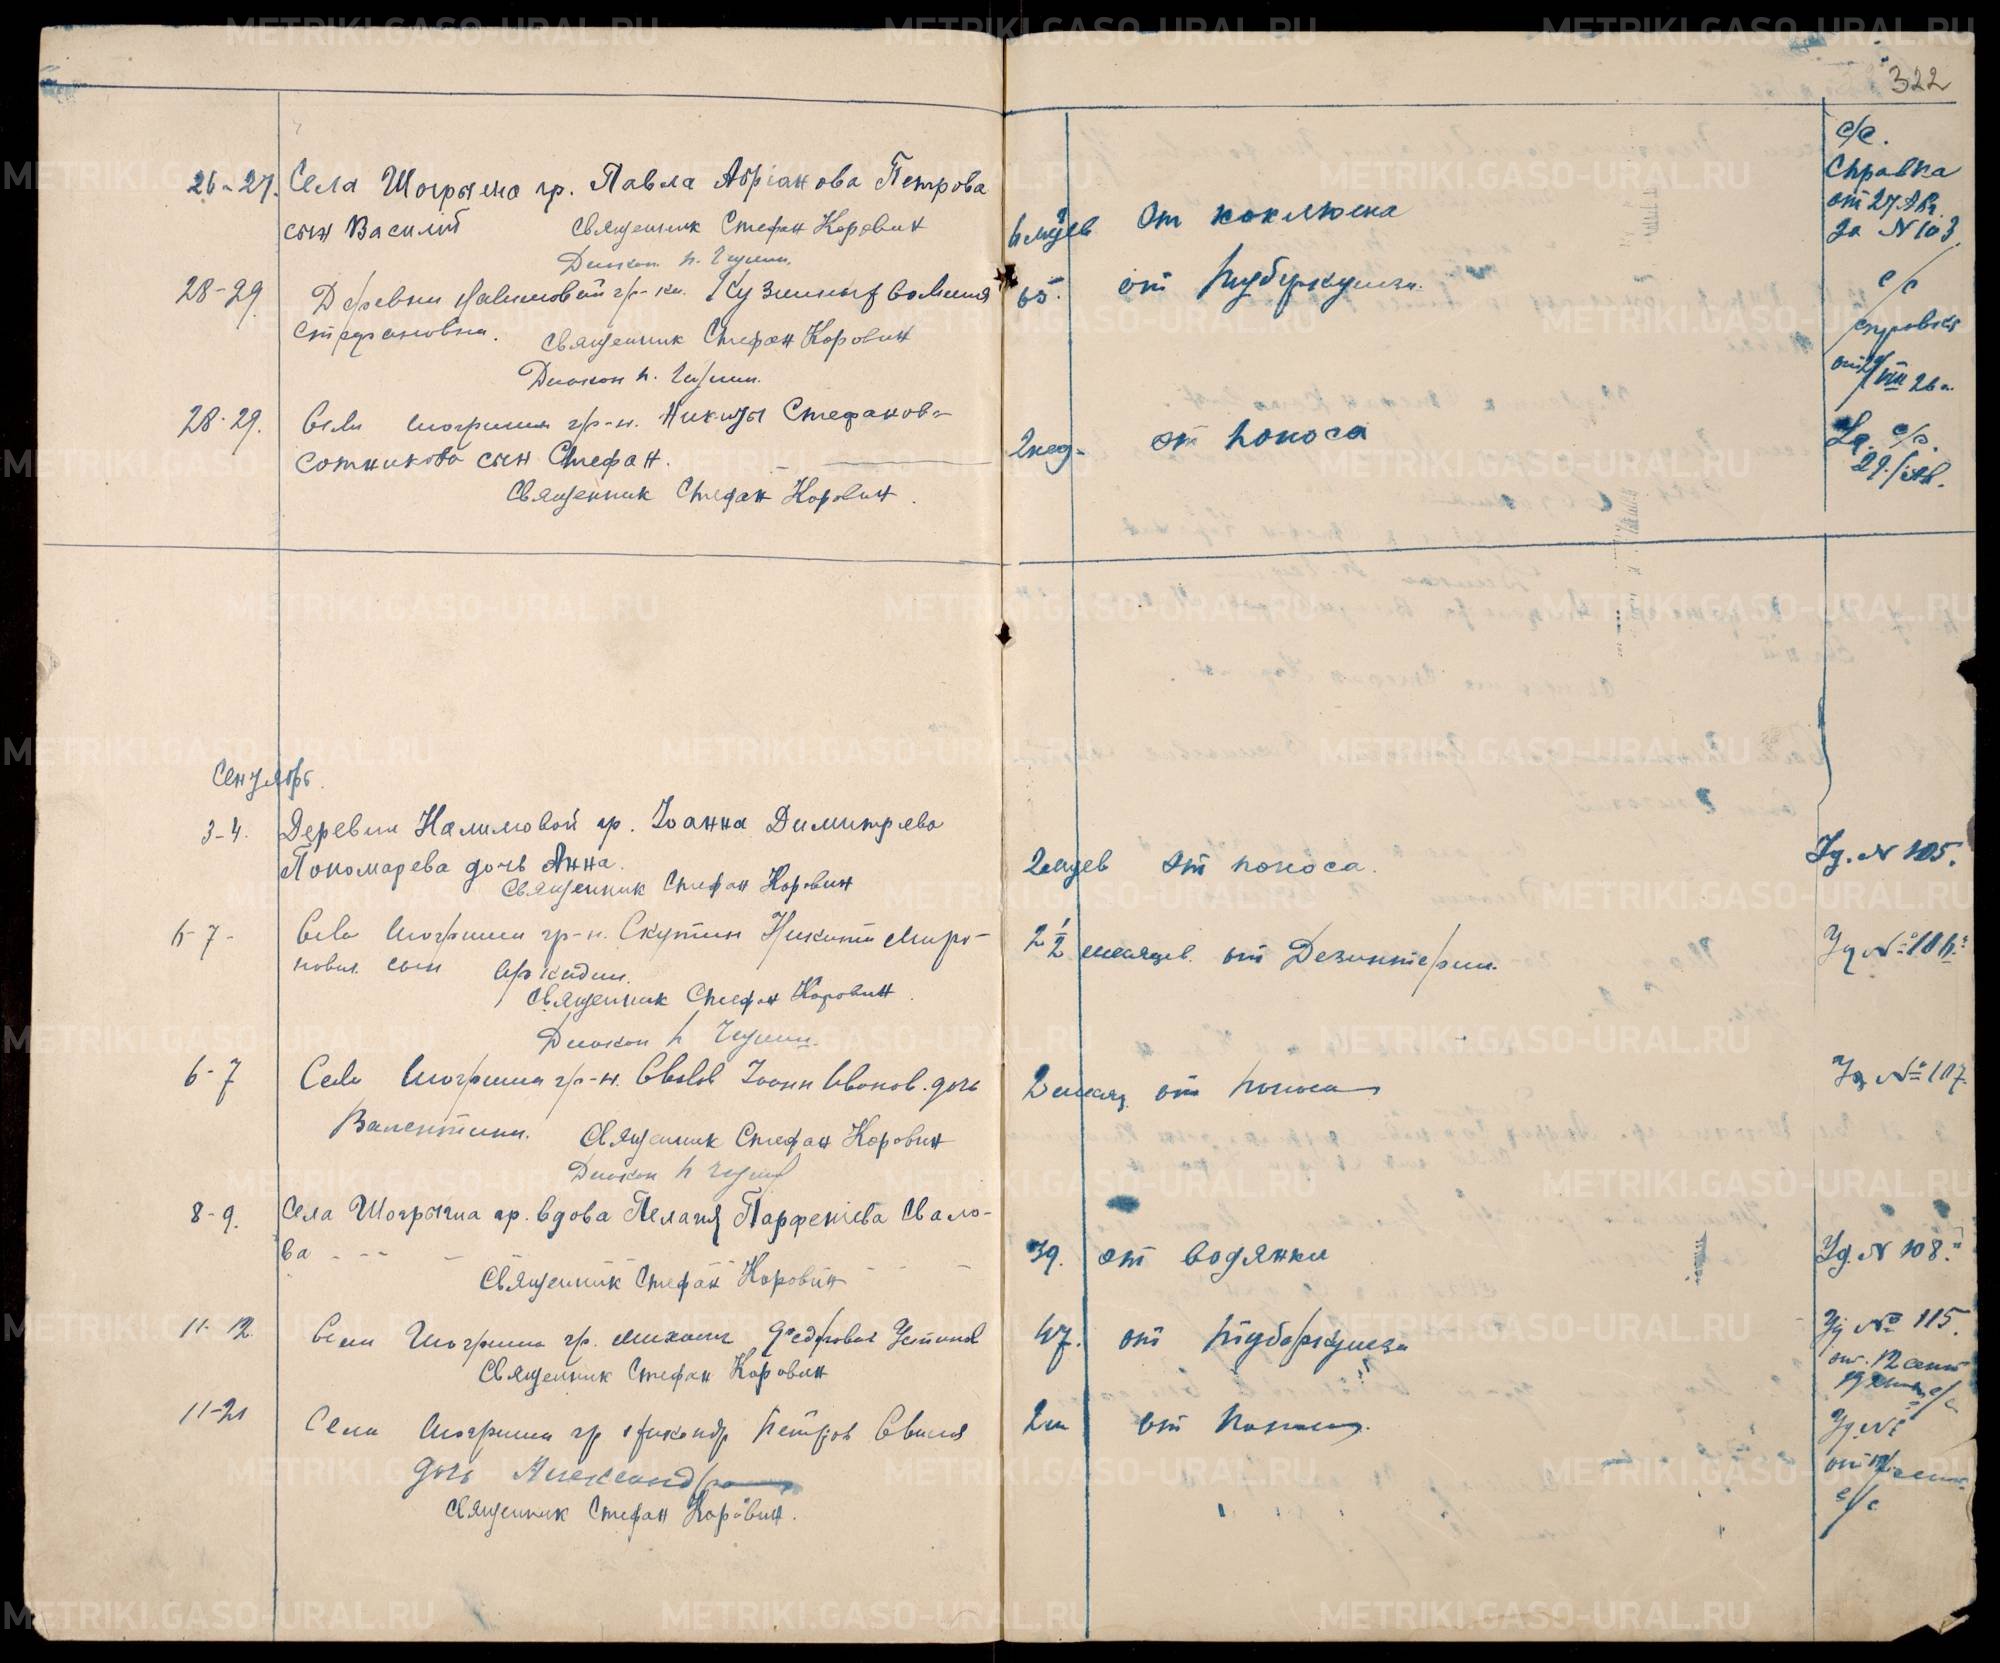 322
26-27. Села Шогрыша гр. Павла Адріанова Петрова
сын Василій
Священник Стефан Коровин
Диакон
6 м-цев От коклюша
с/с.
Справка
от 27 Авг.
за N 103.
28-29. Деревни Налимовой гр-ка.
Стефановна.
Священник Стефан Коровин
Диакон
65. от туберкулеза.
с/с
справка
от 29/VIII 26 г.
28-29. Села Шогриша гр-н. Никиты Стефанов-
Сотникова сын Стефан.
Священник Стефан Коровин.
2 нед- от поноса
Уд. с/с.
29/ав.
Сентябрь.
3-4. Деревни Налимовой гр. Іоанна Димитрева
Пономарева дочь Анна.
Священник Стефан Коровин
2 м-цев от поноса.
Уд. N 105.
6-7- Села Шогриша гр-н. Скутин Никита Миро-
нович. сын Аркадий.
Священник Стефан Коровин.
Диакон
2 1/2 месяцев. от Дезинтерии.
Уд № 106.
6-7 Села Шогриша гр-н. Свалов Іоанн Иванов. дочь
Валентина.
Священник Стефан Коровин
Диакон
2 месяц. от поноса
Уд № 107.
8-9. Села Шогрыша гр. вдова Пелагія Парфеніева Свало-
ва
Священник Стефан Коровин
39. от водянки
Уд. N 108.
11-12. Села Шогриша гр. Михаил Федорович Устинов
Священник Стефан Коровин
47. от туберкулеза
Уд № 115.
от. 12 сент
с/с
11-21 Села Шогриша гр Петров
дочь Александра
Священник Стефан Коровин.
2 м от поноса.
Уд №
от
с/с
METRIKI.GASO-URAL.RU